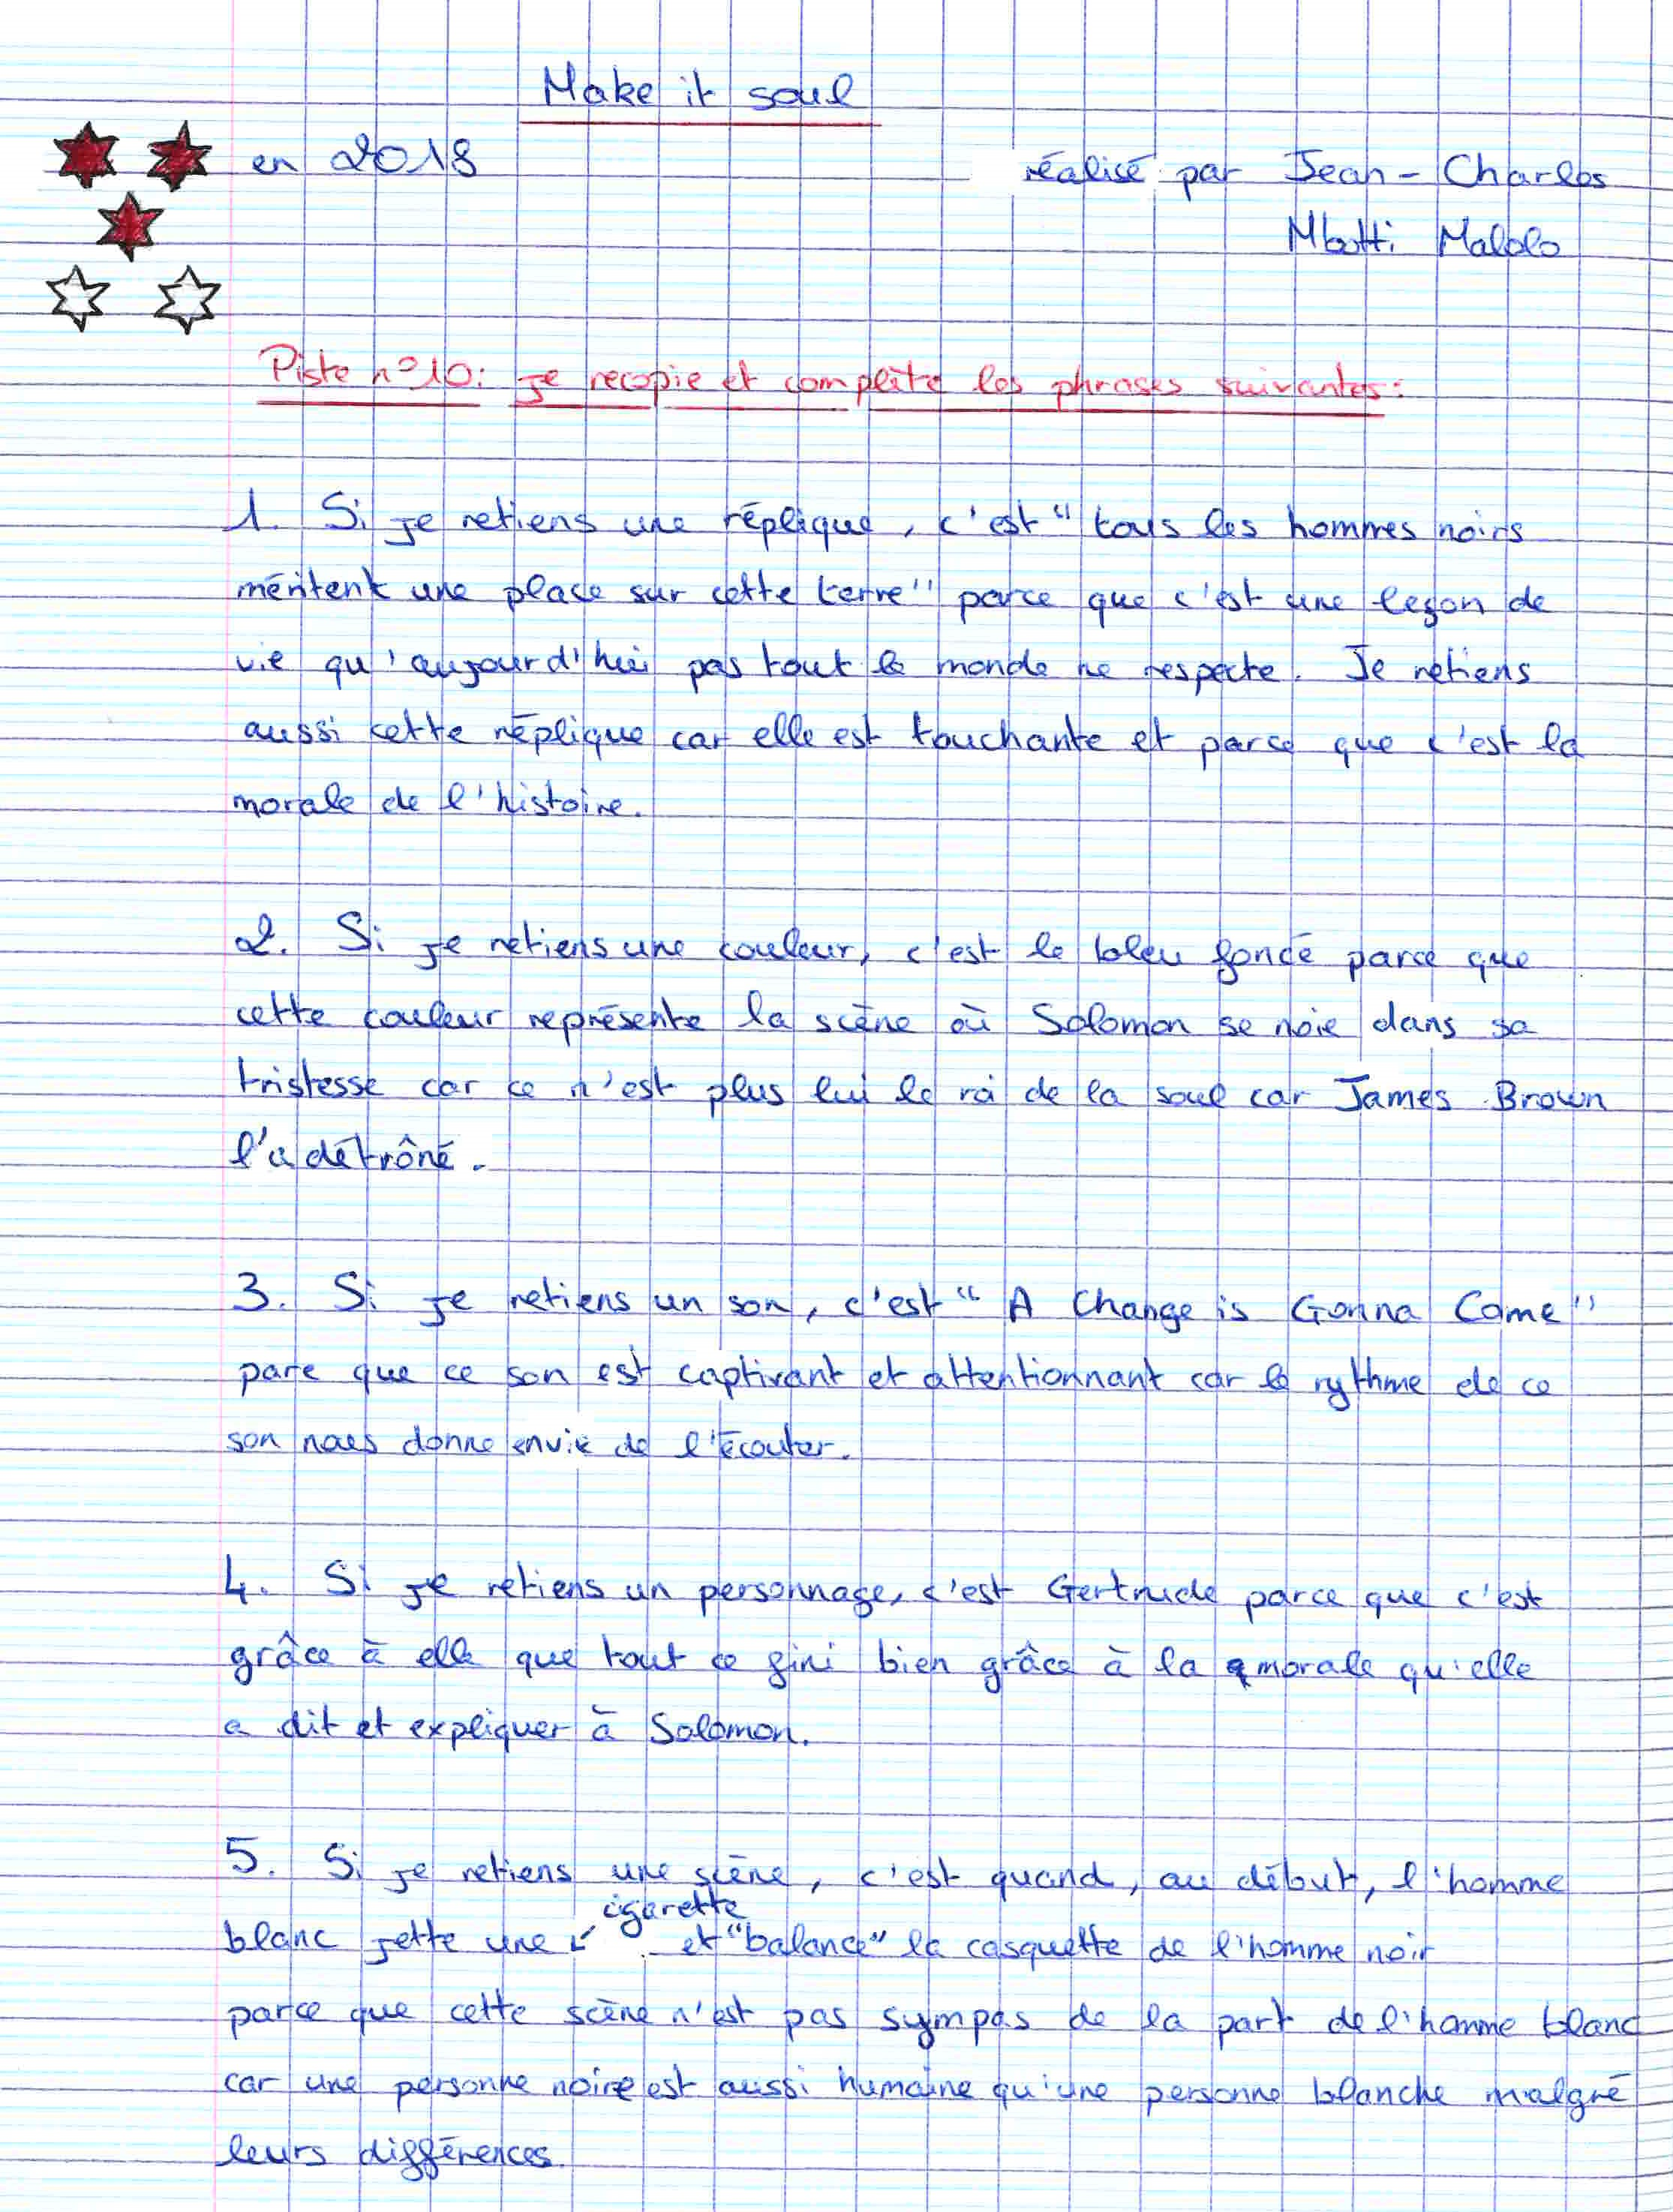 Make it soul
en 2018
réalisé par Jean-Charles
Mbotti Malolo
Piste n°10: je recopie et complète les phrases suivantes:
1. Si je retiens une réplique, c'est "tous les hommes noirs
méritent une place sur cette terre" parce que c'est une leçon de
vie qu'aujourd'hui pas tout le monde ne respecte. Je retiens
aussi cette réplique car elle est touchante et parce que c'est la
morale de l'histoire.
2. Si je retiens une couleur, c'est le bleu foncé parce que
cette couleur représente la scène où Solomon se noie dans sa
tristesse car ce n'est plus lui le roi de la soul car James Brown
l'a détrôné.
3. Si je retiens un son, c'est "A Change is Gonna Come"
pare que ce son est captivant et attentionnant car le rythme de ce
son nous donne envie de l'écouter.
4. Si je retiens un personnage, c'est Gertrude parce que c'est
grâce à elle que tout ce fini bien grâce à la morale qu'elle
a dit et expliquer à Solomon.
5. Si je retiens une scène, c'est quand, au début, l'homme
blanc jette une cigarette et "balance" la casquette de l'homme noir
parce que cette scène n'est pas sympas de la part de l'homme blanc
car une personne noire est aussi humaine qu'une personne blanche malgré
leurs différences.